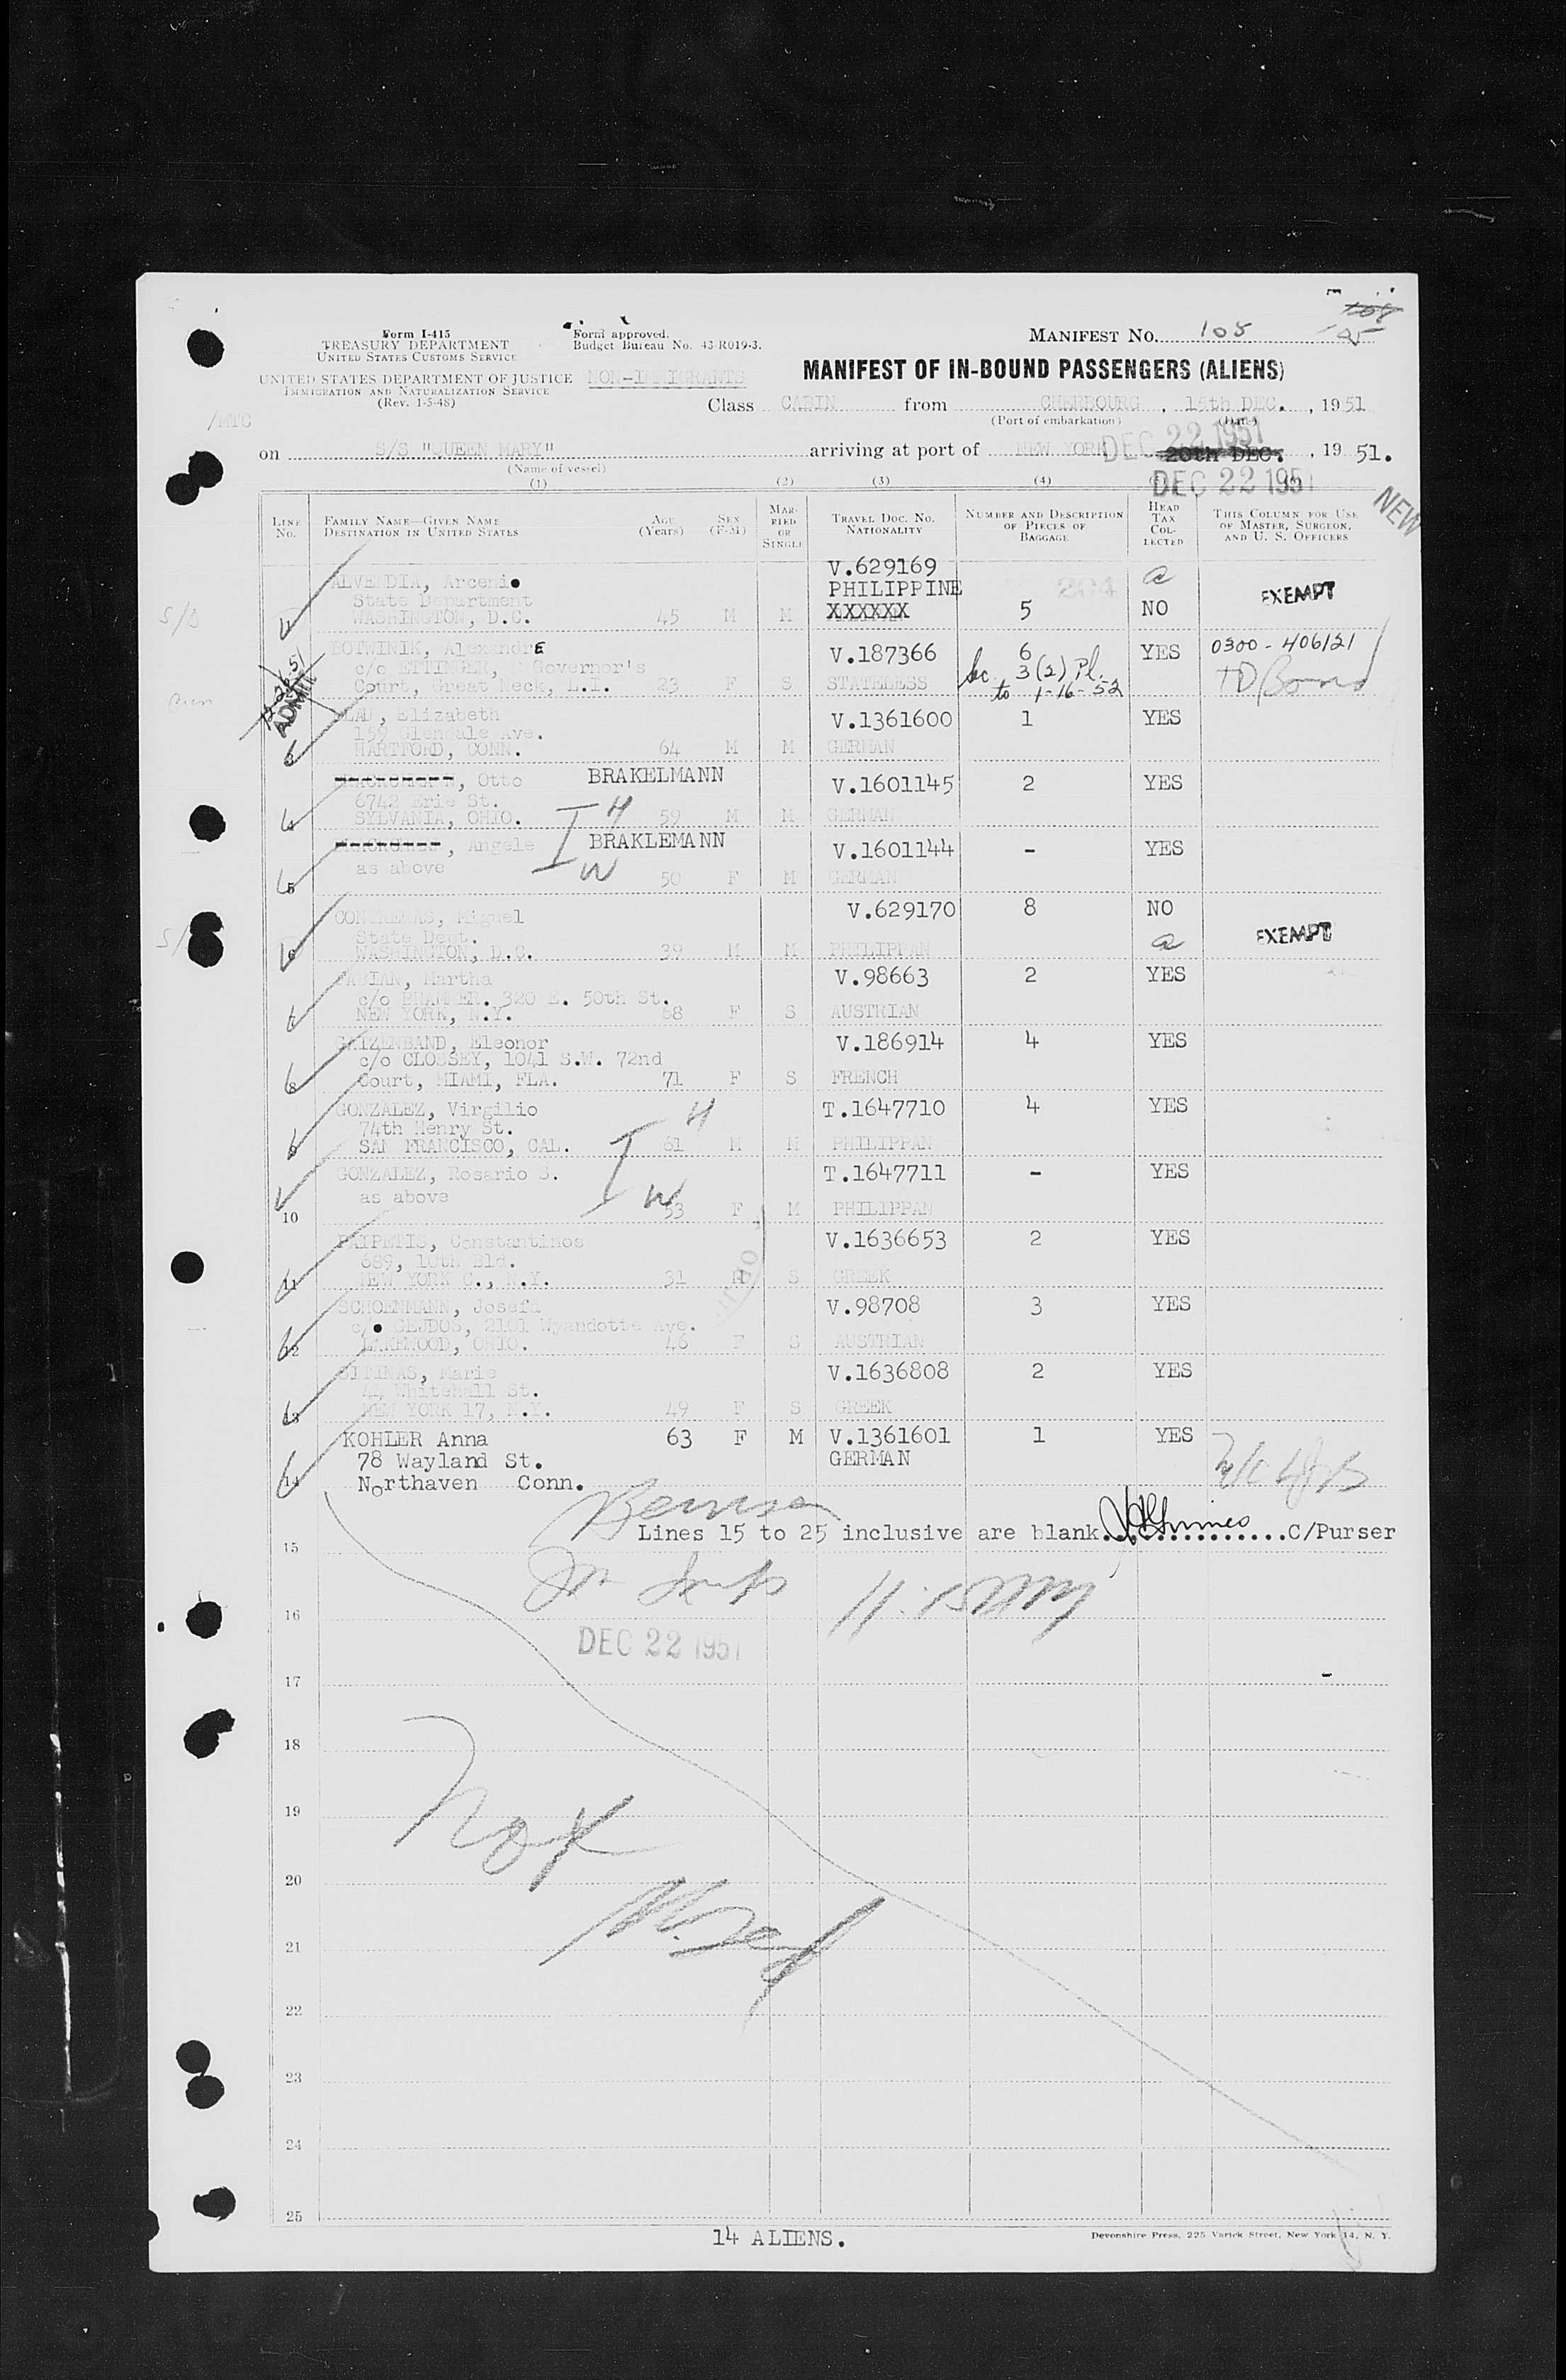 Form I-415
TREASURY DEPARTMENT
UNITED STATES CUSTOMS SERVICE
UNITED STATES DEPARTMENT OF JUSTICE
IMMIGRATION AND NATURALIZATION SERVICE
(Rev. 1-5-48)
Form approved.
Budget Bureau No. 43-R019-3.
NON-IMMIGRANTS
MANIFEST NO. 108
MANIFEST OF IN-BOUND PASSENGERS (ALIENS)
/MTC
Class CABIN from CHERBOURG, 15th DEC., 1951
(Port of embarkation) (Date)
on S/S "QUEEN MARY" arriving at port of NEW YORK 20th DEC., 1951.
(Name of vessel)
DEC 22 1951
DEC 22 1951
NEW
(1) (2) (3) (4)
LINE No. FAMILY NAME—GIVEN NAME DESTINATION IN UNITED STATES AGE (Years) SEX (F-M) MARRIED OR SINGLE TRAVEL DOC. NO. NATIONALITY NUMBER AND DESCRIPTION OF PIECES OF BAGGAGE HEAD TAX COLLECTED THIS COLUMN FOR USE OF MASTER, SURGEON, AND U. S. OFFICERS
V.629169
ALVENDIA, Arcenio PHILIPPINE
State Department EXEMPT
WASHINGTON, D.C. 45 M M XXXXXX 5 NO
BOTWINIK, AlexandrE V.187366 6 YES 0300-406121
c/o ETTINGER, Governor's Sec. 3(2) Pl.
Court, Great Neck, L.I. 23 F S STATELESS to 1-16-52
ADMIT
BLAU, Elizabeth V.1361600 1 YES
159 Glendale Ave.
3 HARTFORD, CONN. 64 M M GERMAN
, Otto BRAKELMANN V.1601145 2 YES
6742 Erie St.
4 SYLVANIA, OHIO. H 59 M M GERMAN
, Angele BRAKLEMANN V.1601144 - YES
as above W
5 50 F M GERMAN
CONTRERAS, Miguel V.629170 8 NO
State Dept. EXEMPT
6 WASHINGTON, D.C. 39 M M PHILIPPAN
FABIAN, Martha V.98663 2 YES
c/o BRAMMER. 320 E. 50th St.
7 NEW YORK, N.Y. 68 F S AUSTRIAN
GATZENBAND, Eleonor V.186914 4 YES
c/o CLOSSEY, 1041 S.W. 72nd
8 Court, MIAMI, FLA. 71 F S FRENCH
GONZALEZ, Virgilio H T.1647710 4 YES
74th Henry St.
9 SAN FRANCISCO, CAL. 61 M M PHILIPPAN
GONZALEZ, Rosario S. T.1647711 - YES
as above W
10 53 F M PHILIPPAN
PAIPETIS, Constantinos V.1636653 2 YES
689, 10th Bld.
11 NEW YORK C., N.Y. 31 M S GREEK
SCHOENMANN, Josefa V.98708 3 YES
c/o GEJDOS, 2101 Wyandotte Ave.
12 LAKEWOOD, OHIO. 46 F S AUSTRIAN
SITINAS, Marie V.1636808 2 YES
44 Whitehall St.
13 NEW YORK 17, N.Y. 49 F S GREEK
KOHLER Anna 63 F M V.1361601 1 YES
78 Wayland St. GERMAN
14 Northaven Conn.
Lines 15 to 25 inclusive are blank. C/Purser
15
16
DEC 22 1951
17
18
19
20
21
22
23
24
25
14 ALIENS.
Devonshire Press, 225 Varick Street, New York 14, N. Y.